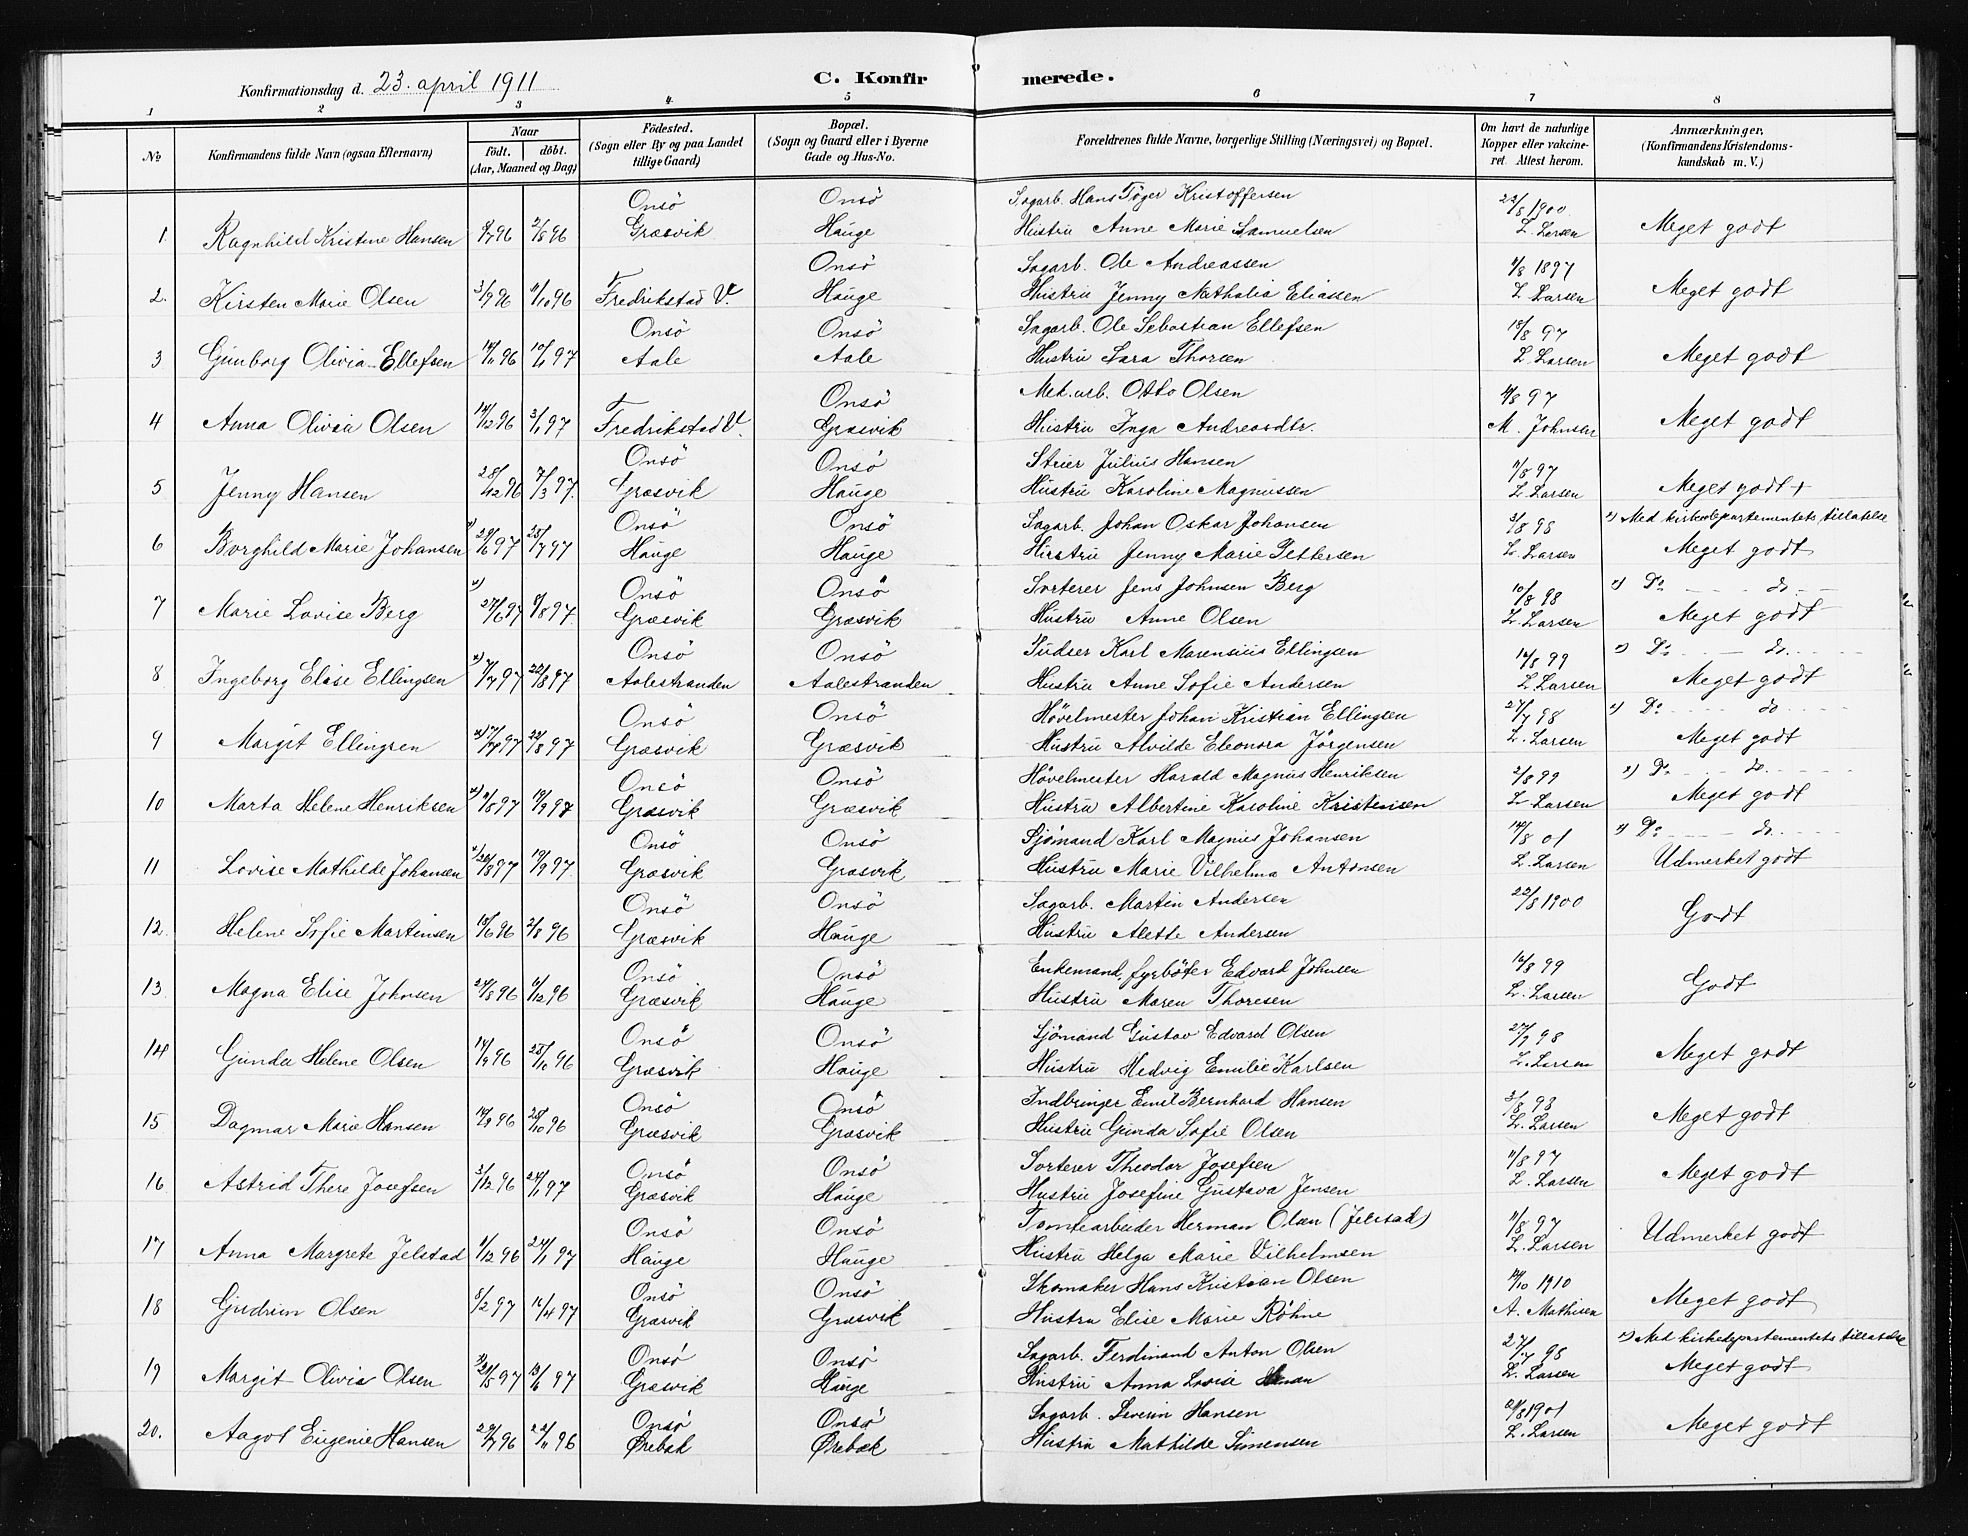 Konfirmationsdag d. 23. april 1911
C. Konfirmerede.
1 2 3 4 5 6 7 8
No
Konfirmandens fulde Navn (ogsaa Efternavn)
Naar
födt. döbt.
(Aar, Maaned og Dag)
Födested.
(Sogn eller By og paa Landet
tillige Gaard)
Bopæl.
(Sogn og Gaard eller i Byerne
Gade og Hus-No.
Forældrenes fulde Navne, borgerlige Stilling (Næringsvei) og Bopæl.
Om havt de naturlige
Kopper eller vakcine-
ret. Attest herom.
Anmærkninger,
(Konfirmandens Kristendoms-
kundskab m. V.)
Onsö Onsö Sagarb. Hans Töger Kristoffersen 22/8 1900
1. Ragnhild Kristine Hansen 2/8 96 Græsvik Hauge Hustru Anne Marie Samuelsen L. Larsen Meget godt
Onsö Sagarb. Ole Andreassen 11/8 1897
2. Kirsten Marie Olsen 3/9 96 11/10 96 Fredrikstad V. Hauge Hustru Jenny Mathalia Eliassen L. Larsen Meget godt
Onsö Onsö Sagarb. Ole Sebastian Ellefsen 18/8 97
3 Gunborg Olivia Ellefsen 14/11 96 10/1 97 Aale Aale Hustru Sara Thorsen L. Larsen Meget godt
Onsö Mek. arb. Otto Olsen 11/8 97
4 Anna Olivia Olsen 14/12 96 3/1 97 Fredrikstad V. Græsvik Hustru Inga Andreasdtr. M. Johnsen Meget godt
Onsö Onsö Stuer Julius Hansen 11/8 97
5 Jenny Hansen 28/12 96 7/3 97 Græsvik Hauge Hustru Karoline Magnussen L. Larsen Meget godt
Onsö Onsö Sagarb. Johan Oskar Johansen 3/8 98 x) Med kirkedepartementets tillatelse
6 Borghild Marie Johansen x) 29/6 97 25/7 97 Hauge Hauge Hustru Jenny Marie Pettersen L. Larsen Meget godt
Onsö Onsö Sorterer Jens Johnsen Berg 10/8 98 x) Do do
7 Marie Lovise Berg x) 27/6 97 8/8 97 Græsvik Græsvik Hustru Anne Olsen L. Larsen Meget godt
Onsö Onsö Karl Marensius Ellingsen 14/8 99 x) Do do
8 Ingeborg Elise Ellingsen x) 7/7 97 22/8 97 Aalestranden Aalestranden Hustru Anne Sofie Andersen L. Larsen Meget godt
Onsö Onsö Hövelmester Johan Kristian Ellingsen 27/7 98 x) Do do
9 Margit Ellingsen x) 17/7 97 22/8 97 Græsvik Græsvik Hustru Alvilde Eleonora Jörgensen L. Larsen Meget godt
Onsö Onsö Hövelmester Harald Magnus Henriksen 2/8 99 x) Do do
10 Marta Helene Henriksen x) 11/8 97 19/9 97 Græsvik Græsvik Hustru Albertine Karoline Kristensen L. Larsen Meget godt
Onsö Onsö Sjömand Karl Magnus Johansen 14/8 01 x) Do do
11 Lovise Mathilde Johansen x) 26/8 97 19/9 97 Græsvik Græsvik Hustru Marie Vilhelma Antonsen L. Larsen Udmerket godt
Onsö Onsö Sagarb. Martin Andersen 22/8 1900
12. Helene Sofie Martinsen 18/6 96 2/8 96 Græsvik Hauge Hustru Alette Andersen Godt
Onsö Onsö Enkemand, fyrböter Edvard Johnsen 14/8 99
13 Magna Elise Johnsen 24/8 96 6/12 96 Græsvik Hauge Hustru Maren Thoresen L. Larsen Godt
Onsö Onsö Sjömand Gustav Edvard Olsen 27/7 98
14 Gunda Helene Olsen 14/9 96 25/10 96 Græsvik Hauge Hustru Hedvig Emilie Karlsen L. Larsen Meget godt
Onsö Onsö Indbringer Emil Bernhard Hansen 3/8 98
15 Dagmar Marie Hansen 14/9 96 25/10 96 Græsvik Græsvik Hustru Gunda Sofie Olsen L. Larsen Meget godt
Onsö Onsö Sorterer Theodor Josefsen 11/8 97
16 Astrid There Josefsen 3/12 96 24/1 97 Græsvik Hauge Hustru Josefine Gustava Jensen L. Larsen Meget godt
Onsö Onsö Tomtearbeider Herman Olsen (Jelstad) 11/8 97
17 Anna Margrete Jelstad 11/12 96 24/1 97 Hauge Hauge Hustru Helga Marie Vilhelmsen L. Larsen Udmerket godt
Onsö Onsö Skomaker Hans Kristian Olsen 14/10 1910
18 Gudrun Olsen 8/2 97 16/4 97 Græsvik Græsvik Hustru Elise Marie Röhne A. Mathisen Meget godt
Onsö Onsö Sagarb. Ferdinand Anton Olsen 27/7 98 x) Med kirkedepartementets tillatelse
19 Margit Olivia Olsen x) 21/5 97 13/6 97 Græsvik Hauge Hustru Anna Lovise L. Larsen Meget godt
Onsö Onsö Sagarb. Severin Hansen 21/8 1901
20. Aagot Eugenie Hansen 29/9 96 22/11 96 Ørebæk Ørebæk Hustru Mathilde Simensen L. Larsen Meget godt